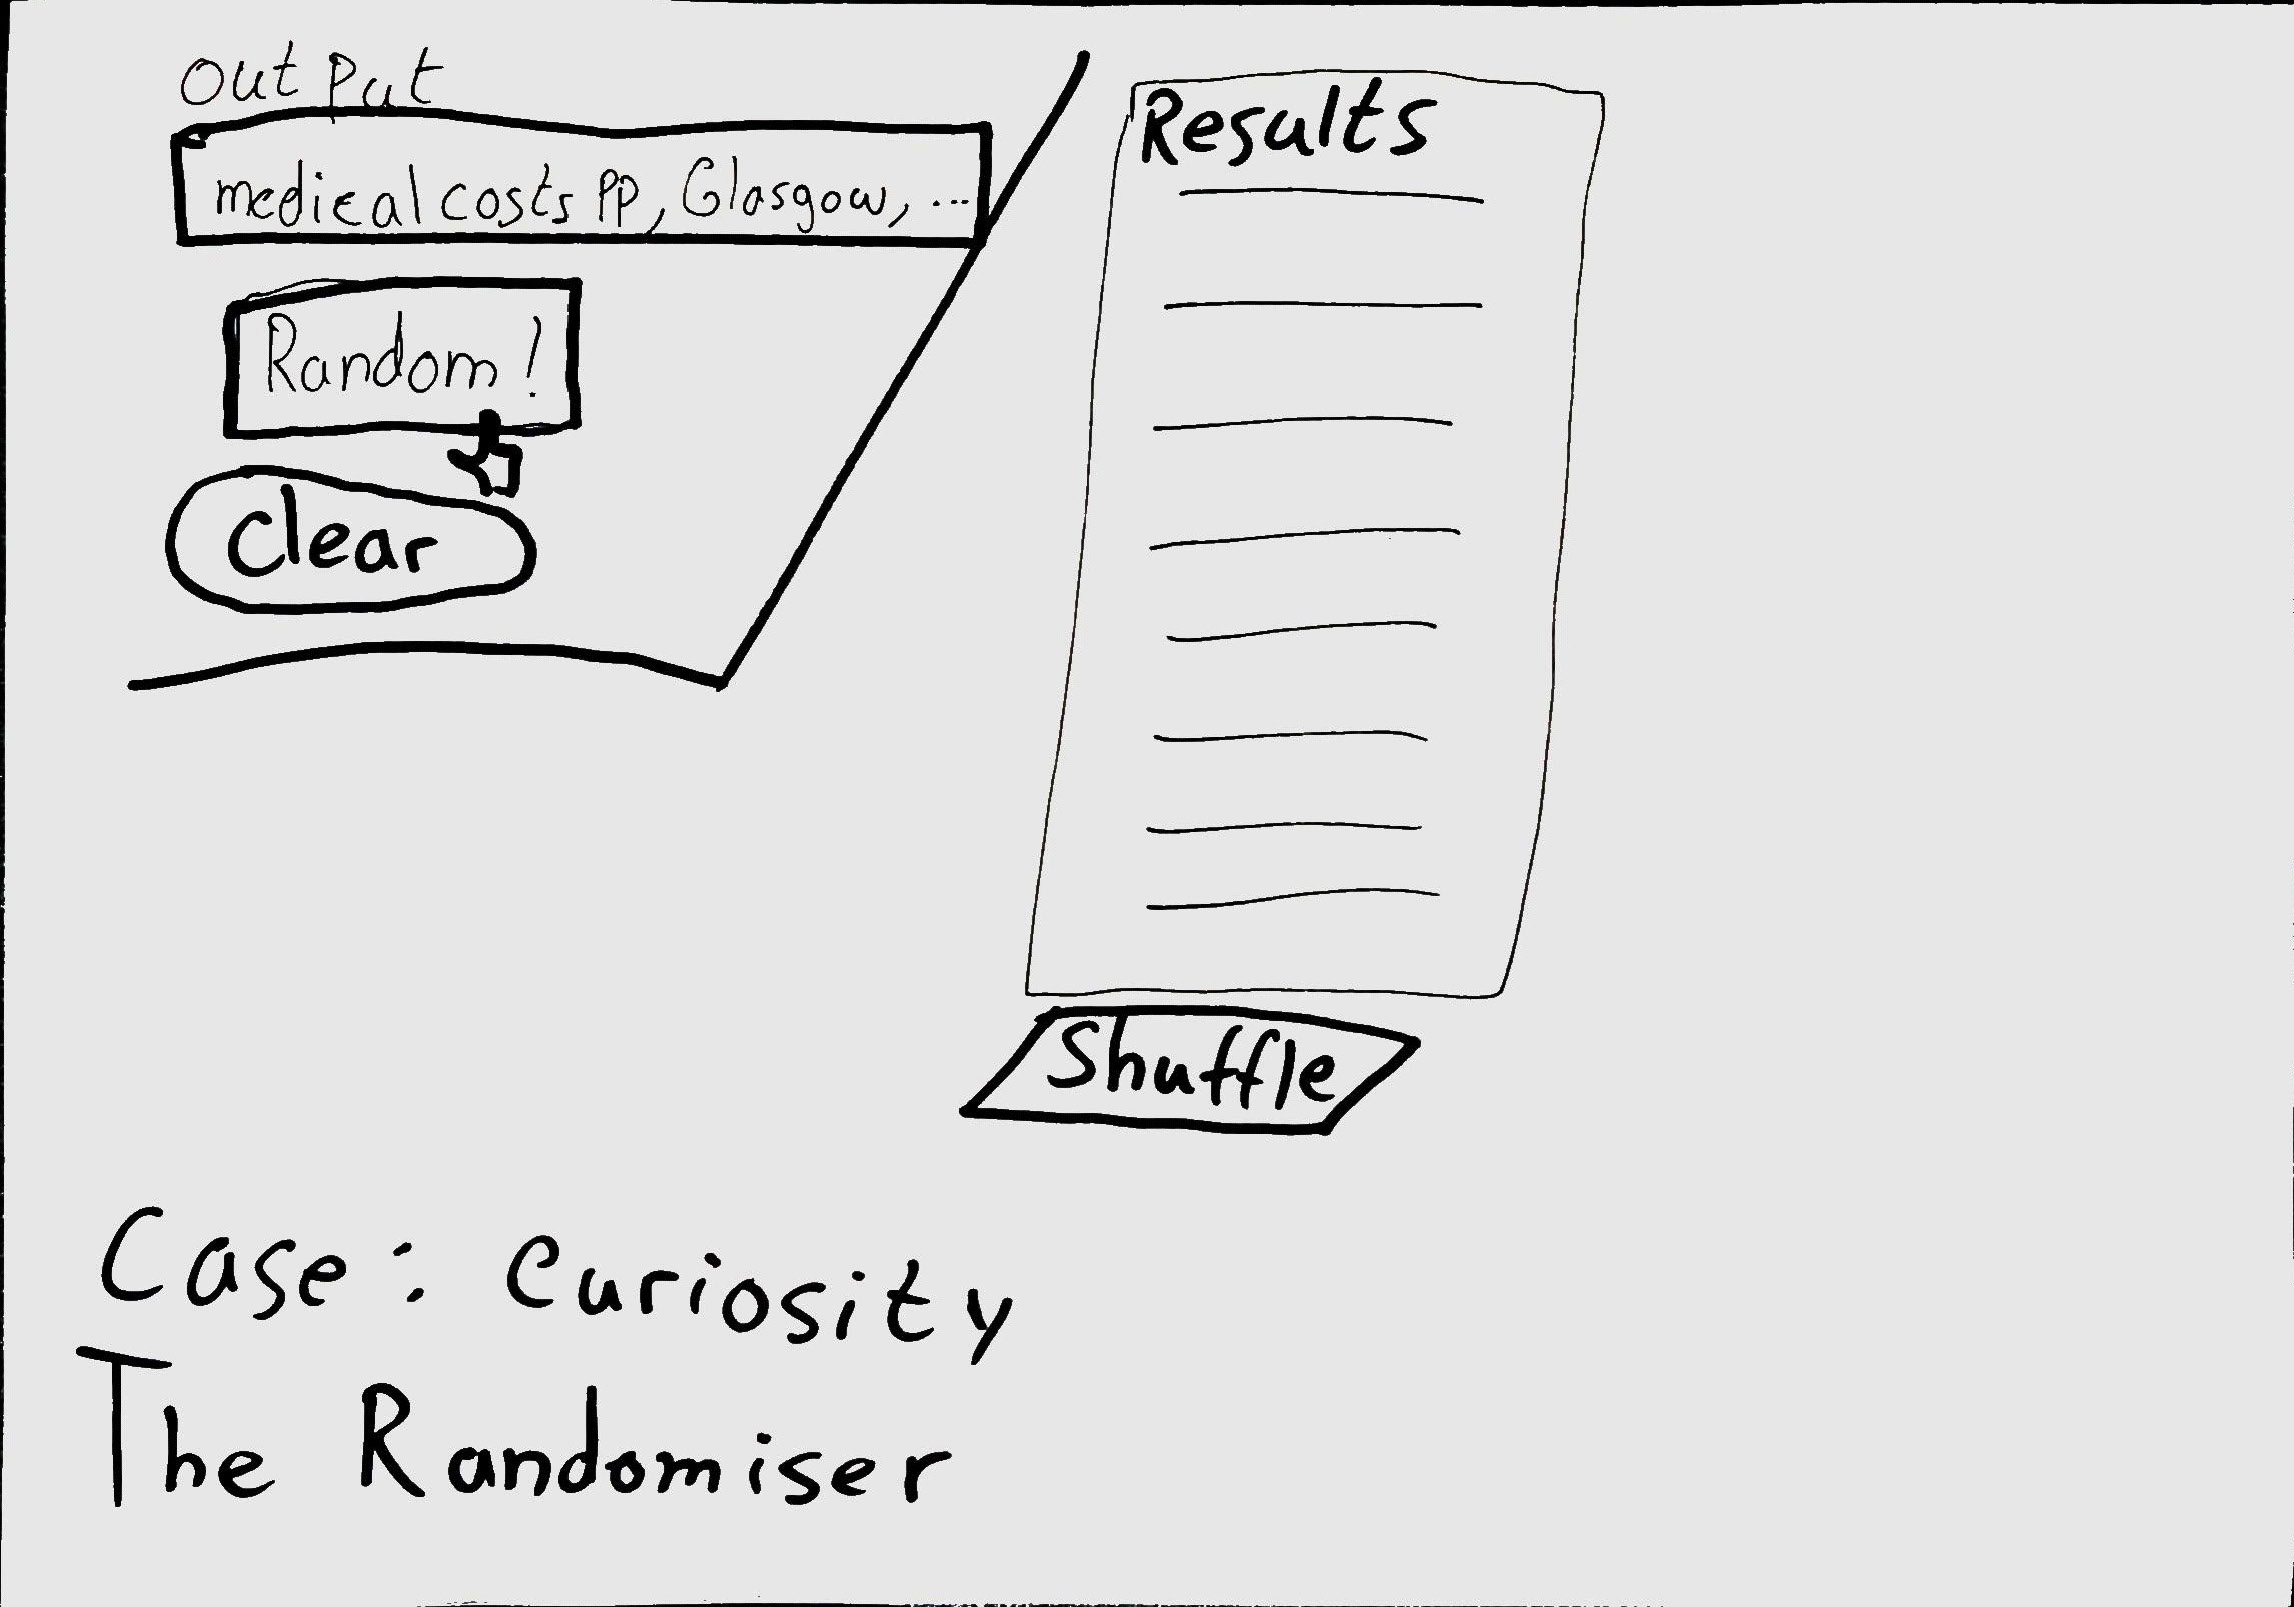 OutPut
medical costs PP, Glasgow, ...
Random!
Clear
Results
Shuffle
Case: Curiosity
The Randomiser